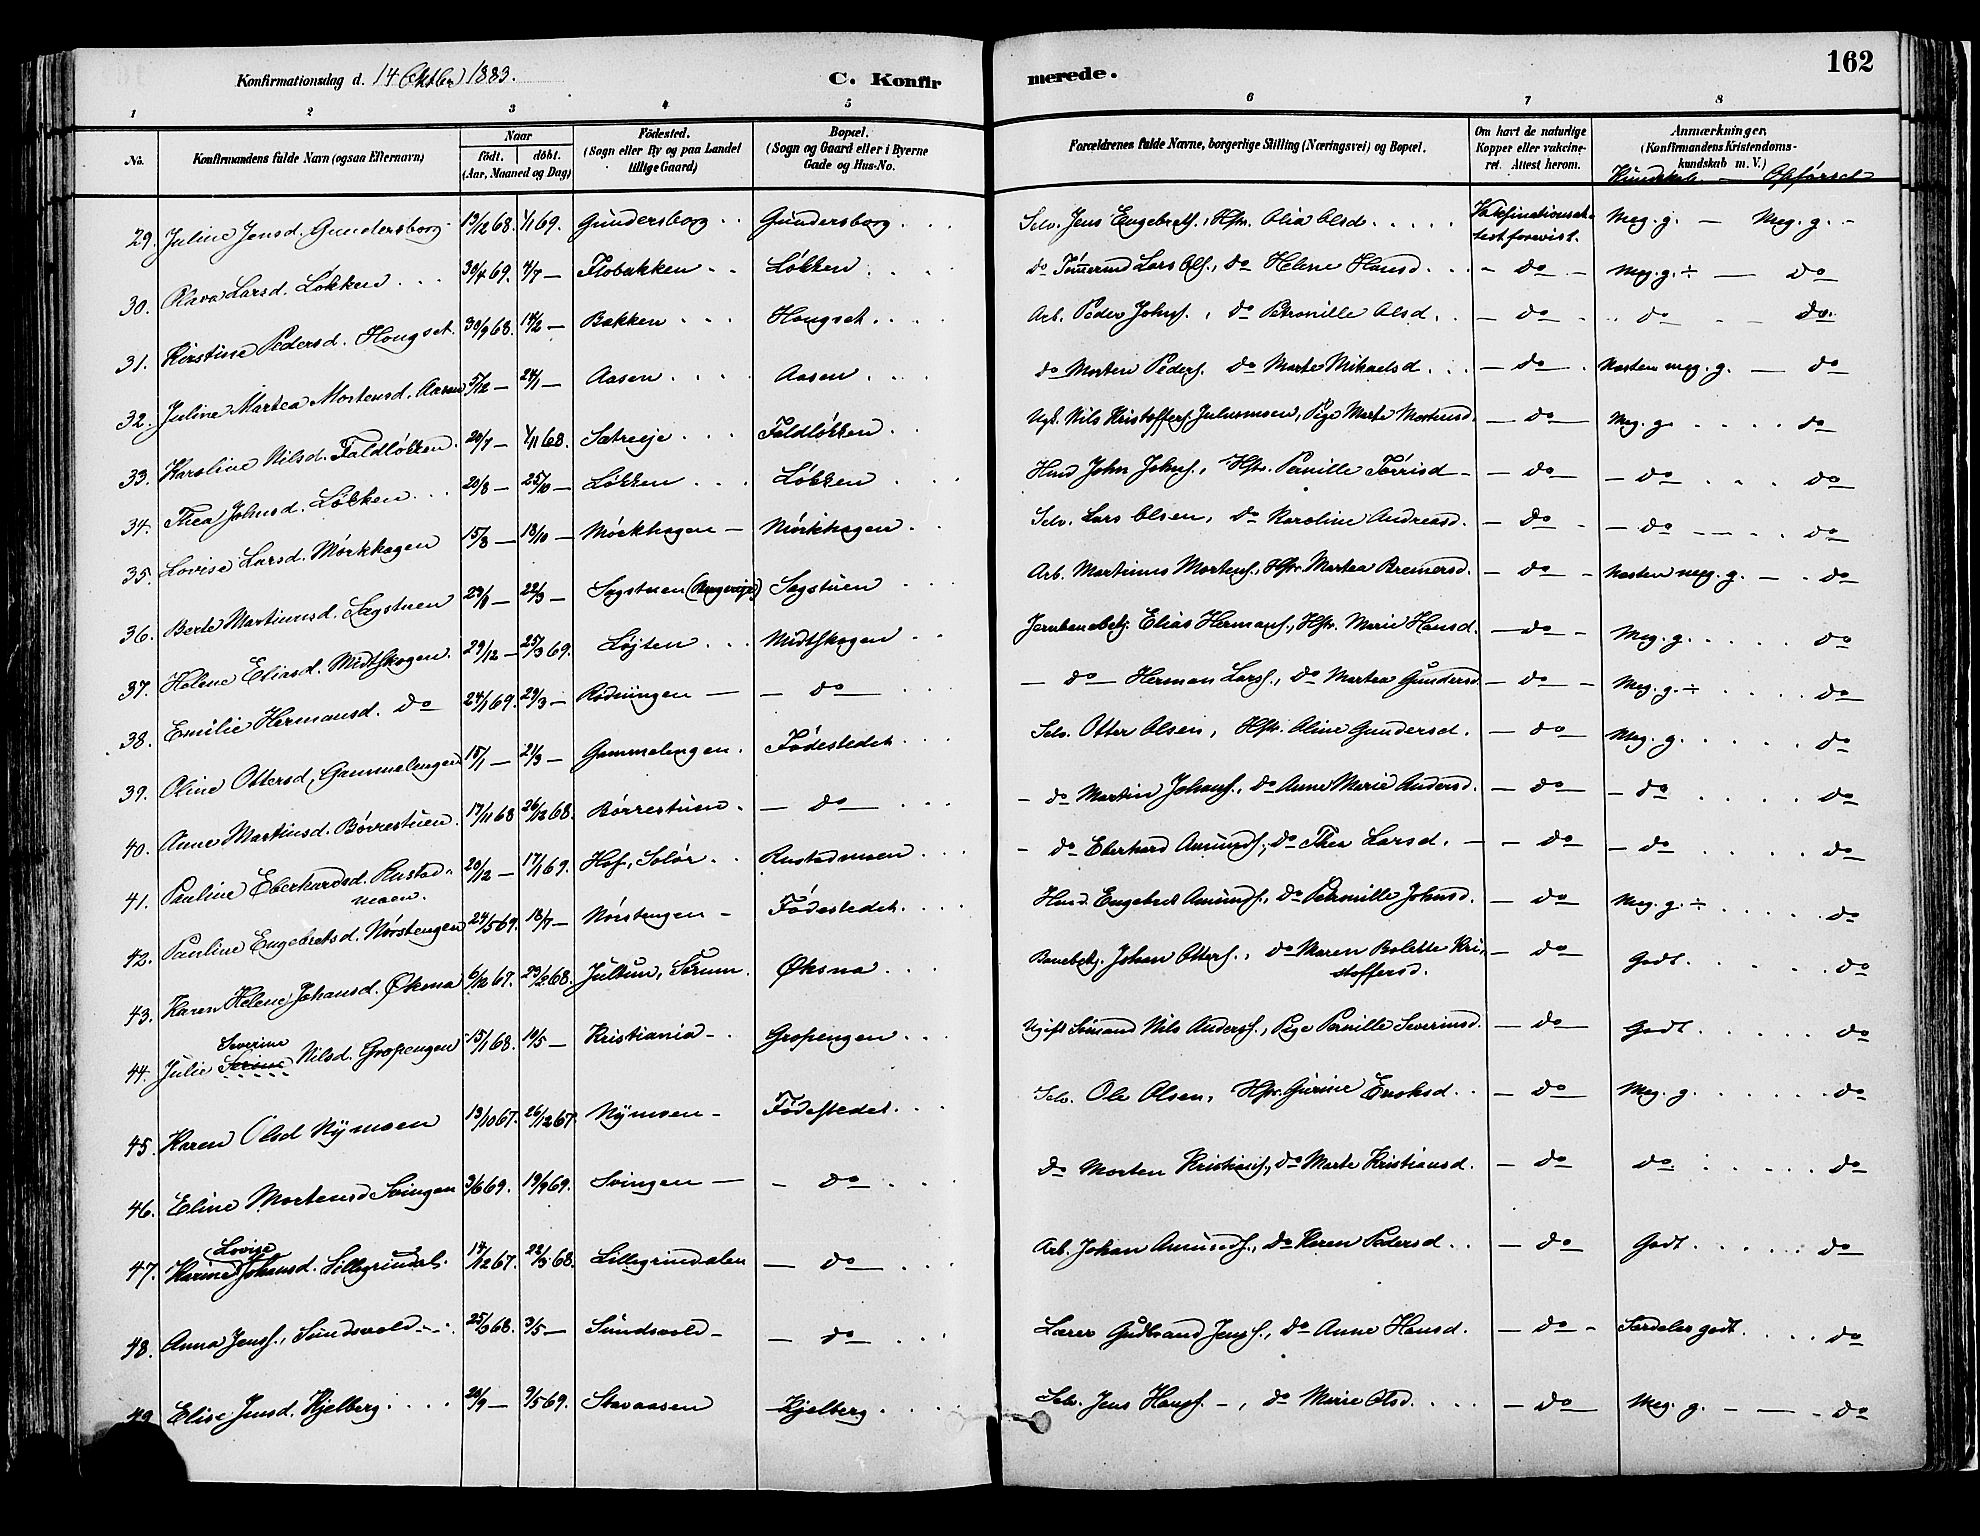 162
Konfirmationsdag d. 14 Oktbr 1883. C. Konfirmerede.
1 2 3 4 5 6 7 8
No. Konfirmandens fulde Navn (ogsaa Efternavn) Naar födt. döbt. (Aar, Maaned og Dag) Födested. (Sogn eller By og paa Landet tillige Gaard) Bopæl. (Sogn og Gaard eller i Byerne Gade og Hus-No. Forældrenes fulde Navne, borgerlige Stilling (Næringsvei) og Bopæl. Om havt de naturlige Kopper eller vakcineret. Attest herom. Anmærkninger. (Konfirmandens Kristendomskundskab m. V.) Kundskab — Opførsel
29. Juline Jensd. Gundersborg. 19/12 68. 1/1 69. Gundersborg . . Gundersborg . . . Selv. Jens Engebretf., Hstr. Olia Olsd . . . . . Vaksinationsattest forevist. Meg. g. — Meg. g. -
30. Olava Larsd. Løkken . . . 30/4 69. 4/7 — Flobakken . . Løkken . . . . do Lars Olf., do Helene Hansd . . . - do - Meg. g. ÷ — do
31. Kirstine Pedersd. Hongset. 30/9 68. 14/2 — Bakken . . . Hongset . . . . Arb. Peder Johnf., do Petronille Olsd . . — do - . . do . - do.
32. Juline Martea Mortensd. Aasen 5/12 — 24/1 — Aasen . . . . Aasen . . . . do Morten Pederf. do Marte Mikaelsd . . . — do — . Næsten meg. g. — do
33. Karoline Nilsd. Faldløkken. 20/7 — 1/11 68. Sætreeje . . . Faldløkken . . Ugt. Nils Kristofferf. Julusmoen, Pige Marte Mortensd. — do — Meg. g. . . . . do
34. Thea Johnsd. Løkken . . . 20/8 — 25/10 — Løkken . . . . Løkken . . . Husd John Johnf., Hstr. Pernille Tørrisd - — do — - do . . . . do
35. Lovise Larsd. Mørkhagen 15/8 — 18/10 — Mørkhagen — Mørkhagen . . Selv. Lars Olsen, do Karoline Andreasd. — do - — do . - - . . do
36. Berte Martinusd. Sagstuen 29/1 — 22/3 — Sagstuen Sagstuen . . . Arb. Martinus Mortenf., Hstr. Martea Bremersd. — do — - Næsten meg. g. — . do
37. Helene Eliasd. Midtskogen. 29/12 — 25/3 69. Løjten . . . Midtskogen . . Jernbanebetj. Elias Hermanf., Hstr. Marie Hansd. — do - Meg. g. . . . . do
38. Emilie Hermansd. do 24/1 69. 29/3 — Rødningen — — do . . . — do — Herman Larsf., do Martea Gundersd — do - Meg. g. ÷ . . . . do
39. Oline Ottersd, Gammelengen 18/1 — 21/3 — Gammelengen . Fødestedet . . . Selv. Otter Olsen, Hstr. Oline Gundersd. — do — Meg. g. . . . . do
40. Anne Martinsd. Børrestuen. 17/11 68 26/12 68. Børrestuen . — do — . . . - do Martin Johanf., do Anne Marie Andersd. — do — - do . . . . do
41. Pauline Eberhardsd. Rustadmoen. 20/12 — 17/1 69. Hof, Solør . . Rustadmoen . . . - do Eberhard Amundf., do Thea Larsd. - - do — - do . . . . do
42. Pauline Engebretsd. Nørstengen 24/5 69. 18/7 — Nørstengen - Fødestedet . . . . Husd. Engebret Amundf., do Petronille Johnsd. — do — Meg. g. ÷ . . . . do
43. Karen Helene Johansd. Øksna 6/12 67. 23/2 68. Julsun, Sørum. Øksna . . . Banebetj. Johan Otterf., do Maren Bolette Kristoffersd. — do — Godt . . . . do
44. Julie Severine Nilsd. Gropengen 15/1 68. 10/5 — Kristiania - . Gropengen . . . Ugift Sömand Nils Andersf., Pige Pernille Severinsd. — do — Godt . . . . do
45. Karen Olsd Nymoen 13/10 67. 26/12 67. Nymoen - Fødestedet . . . Selv. Ole Olsen, Hstr. Gurine Enoksd . . — do — Meg. g. . . . . . do
46. Eline Mortensd Svingen 3/6 69. 19/9 69. Svingen — - do . . . . do Morten Kristianf., do Marte Kristiansd. — do do . . . . . do
47. Karine Lovise Johansd. Lillegrindal. 14/12 67. 22/3 68. Lillegrindalen — do — . . . Arb. Johan Amundf., do Karen Pedersd . . — do — Godt . . . . . do
48. Anna Jensf., Sundsvold . . . 25/3 68. 3/5 — Sundsvold — — do . . . Lærer Gudbrand Jensf., do Anne Hansd. — do - Særdeles godt . . . . do
49 Elise Jensd. Kjelberg . . . . 20/9 — 9/5 69. Stavaasen Kjelberg . . . . Selv. Jens Hansf. -, do Marie Olsd . . . . — do — Meg. g. - — - do